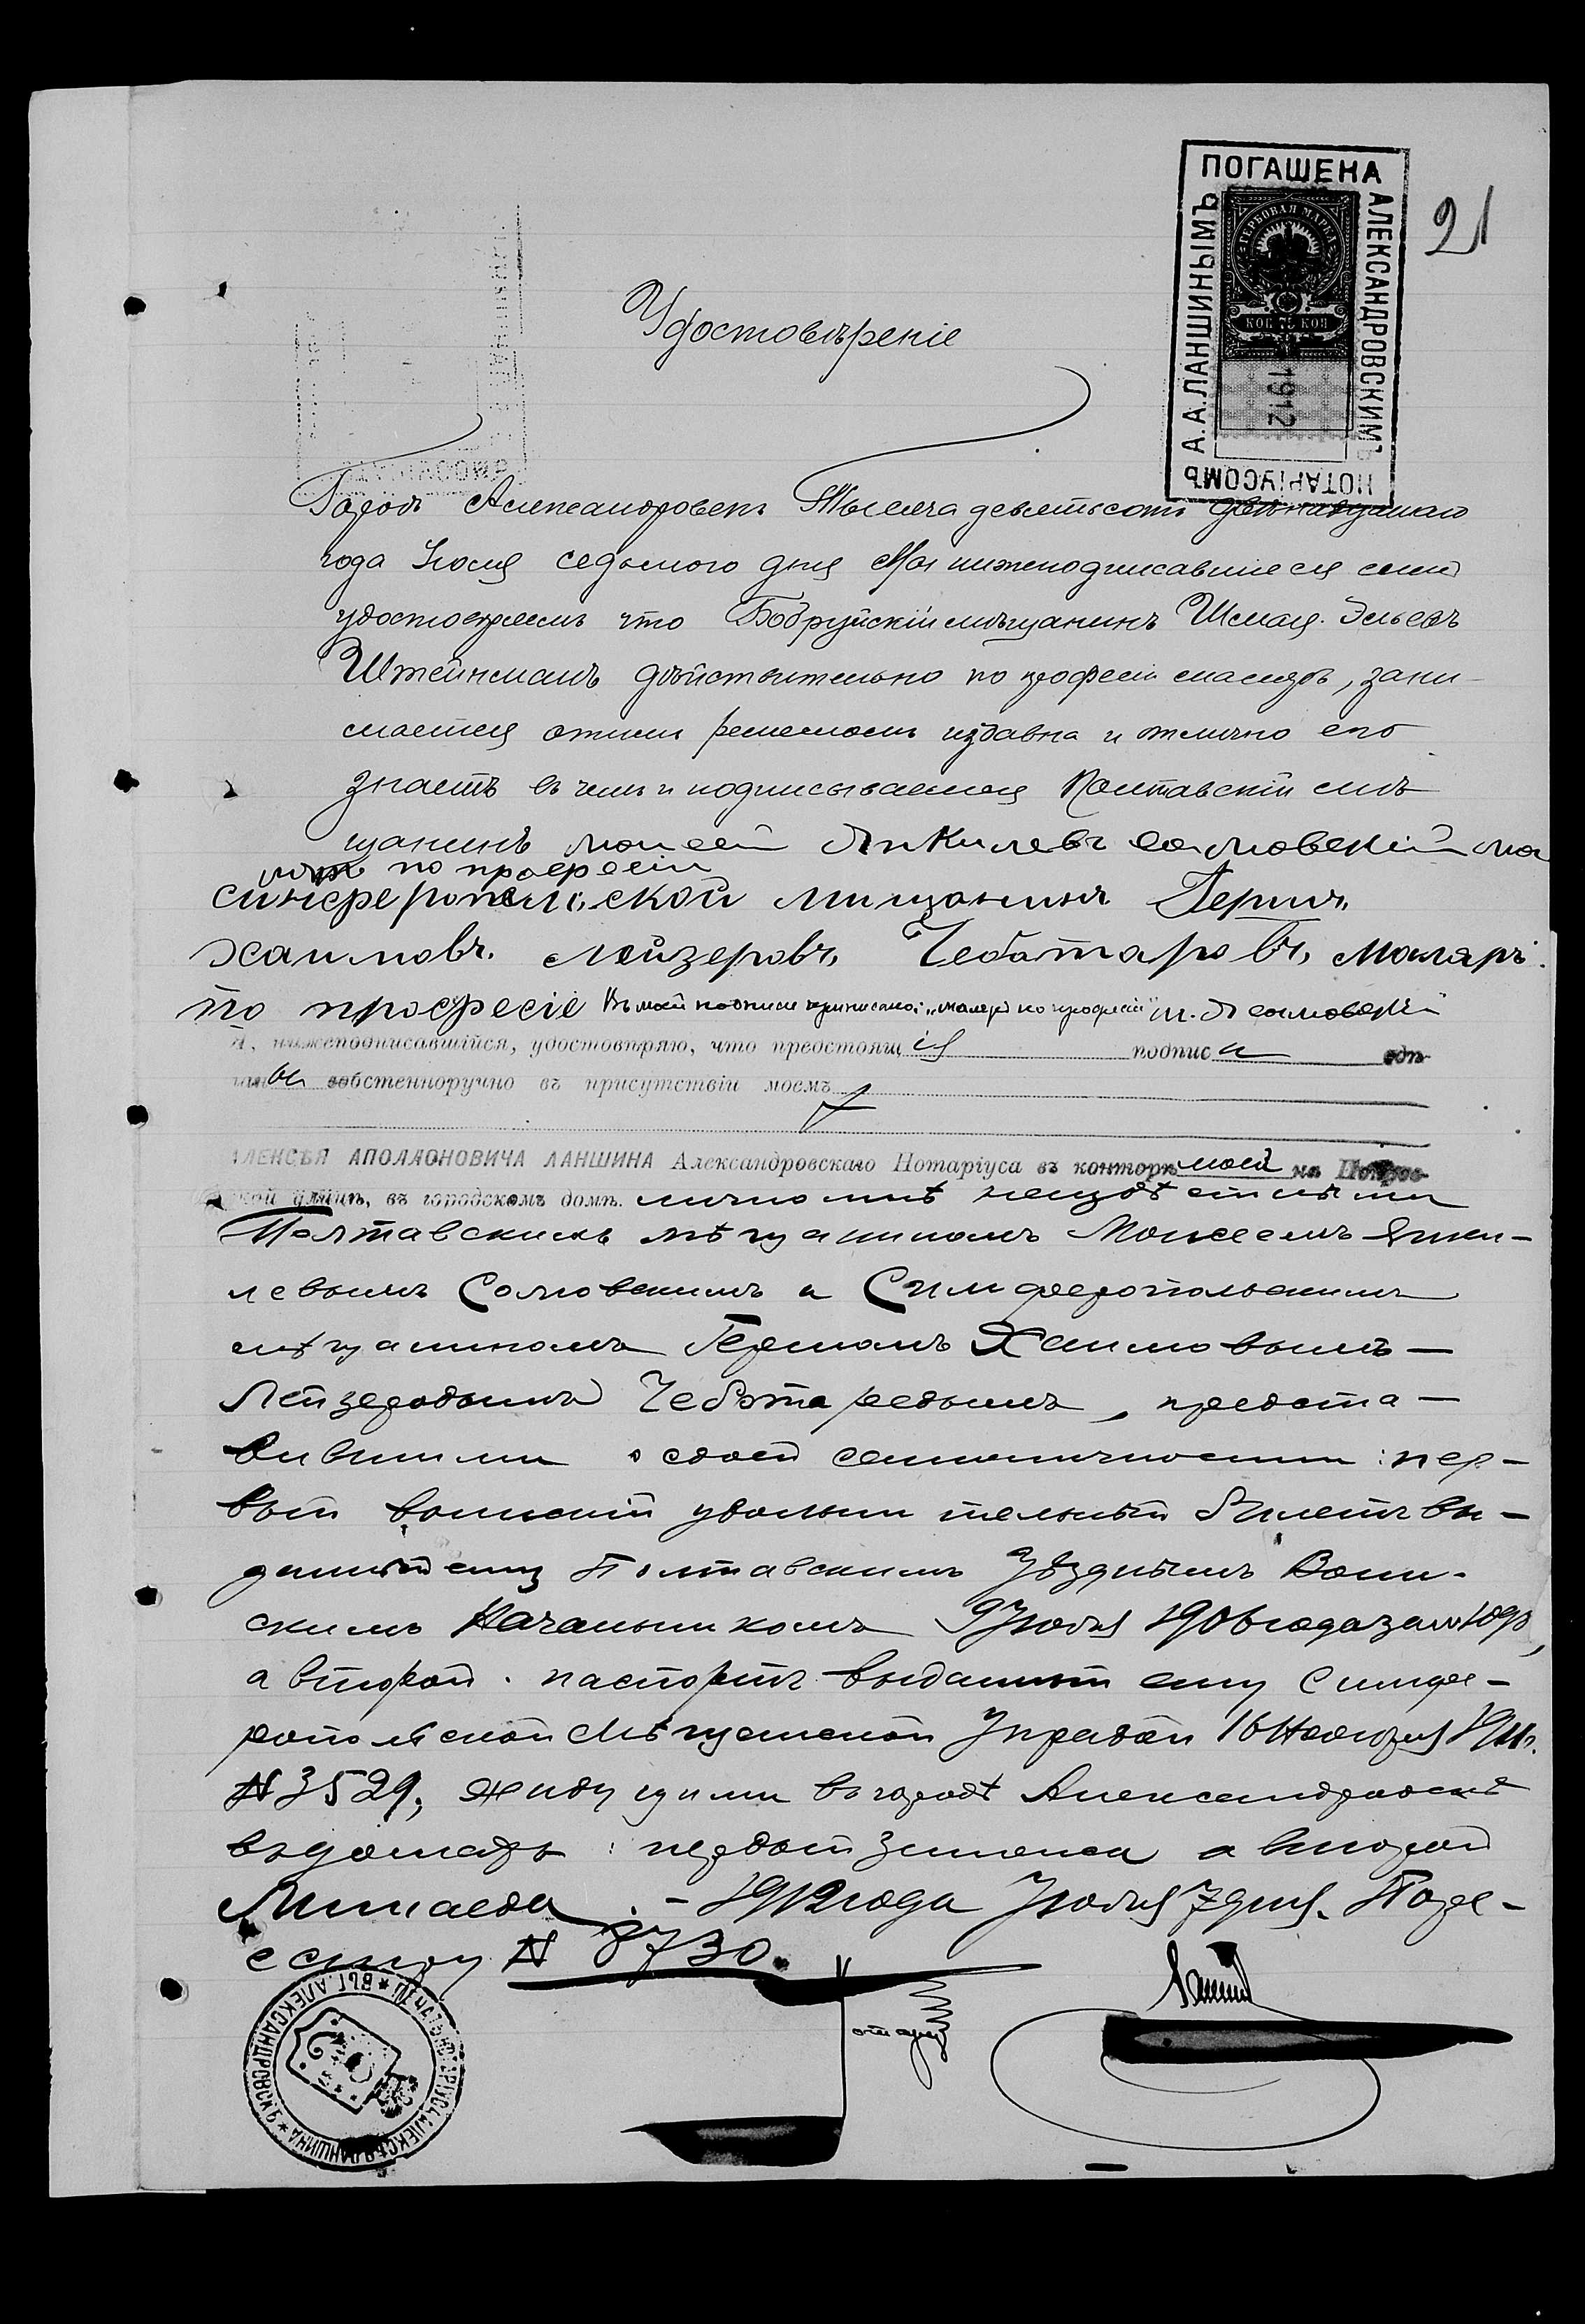 ПОГАШЕНА
АЛЕКСАНДРОВСКИМЪ
НОТАРІУСОМЪ
А.А.ЛАНШИНЫМЪ
ГЕРБОВАЯ МАРКА
КОП 75 КОП
1912
21
Удостовѣреніе
Городъ Александровскъ Тысяча девятьсотъ двѣнадцатаго
года Іюля седьмого дня Мы нижеподписавшіеся симъ
удостовѣряемъ что Бобруйскій мѣщанинъ Шмая Эльевъ
Штейнманъ дѣйствительно по професіи маляръ, зани-
мается этимъ ремесломъ издавна и отлично его
знаемъ въ чемъ и подписываемся Полтавскій мѣ
щанинъ Моисей Янкилевъ Солмовский ма
ляръ по професіи
симферопольской мищанинъ Герш
Хаимовъ Лейзеровъ Чеботаровъ, маляръ
по професіе Въ моей подписи приписано: „маляръ по професіи" М. Я Солмовский
Я, нижеподписавшійся, удостовѣряю, что предстоящія подписи сдѣ-
ланы собственноручно въ присутствіи моемъ
АЛЕКСѢЯ АПОЛЛОНОВИЧА ЛАНШИНА Александровскаго Нотаріуса въ конторѣ моей на Покров-
ской улицѣ, въ городскомъ домѣ. лично мнѣ неизвѣстными
Полтавскимъ мѣщаниномъ Моисеемъ Янки-
левымъ Солмовскимъ и Симферопольскимъ
мѣщаниномъ Гершомъ Хаимовымъ —
Лейзеровымъ Чеботаревымъ, предста —
вившими о своей самоличности: пер-
вый воинскій увольнительный билетъ вы-
данный ему Полтавскимъ Уѣзднымъ Воин-
скимъ Начальникомъ 9 Іюля 1906 года за №
а второй паспортъ выданный ему Симфе-
ропольской Мѣщанской Управой 16 Ноября 1911 г.
№ 3529, живущими въ городѣ Александровскѣ
въ домахъ: первый а второй
Минаева. - 1912 года Іюля 7 дня. По ре-
естру № 8730.
Нотаріусъ Ланшинъ
НОТАРІУСЪ АЛЕКСѢЯ ЛАНШИНА * ВЪ Г. АЛЕКСАНДРОВСКѢ *